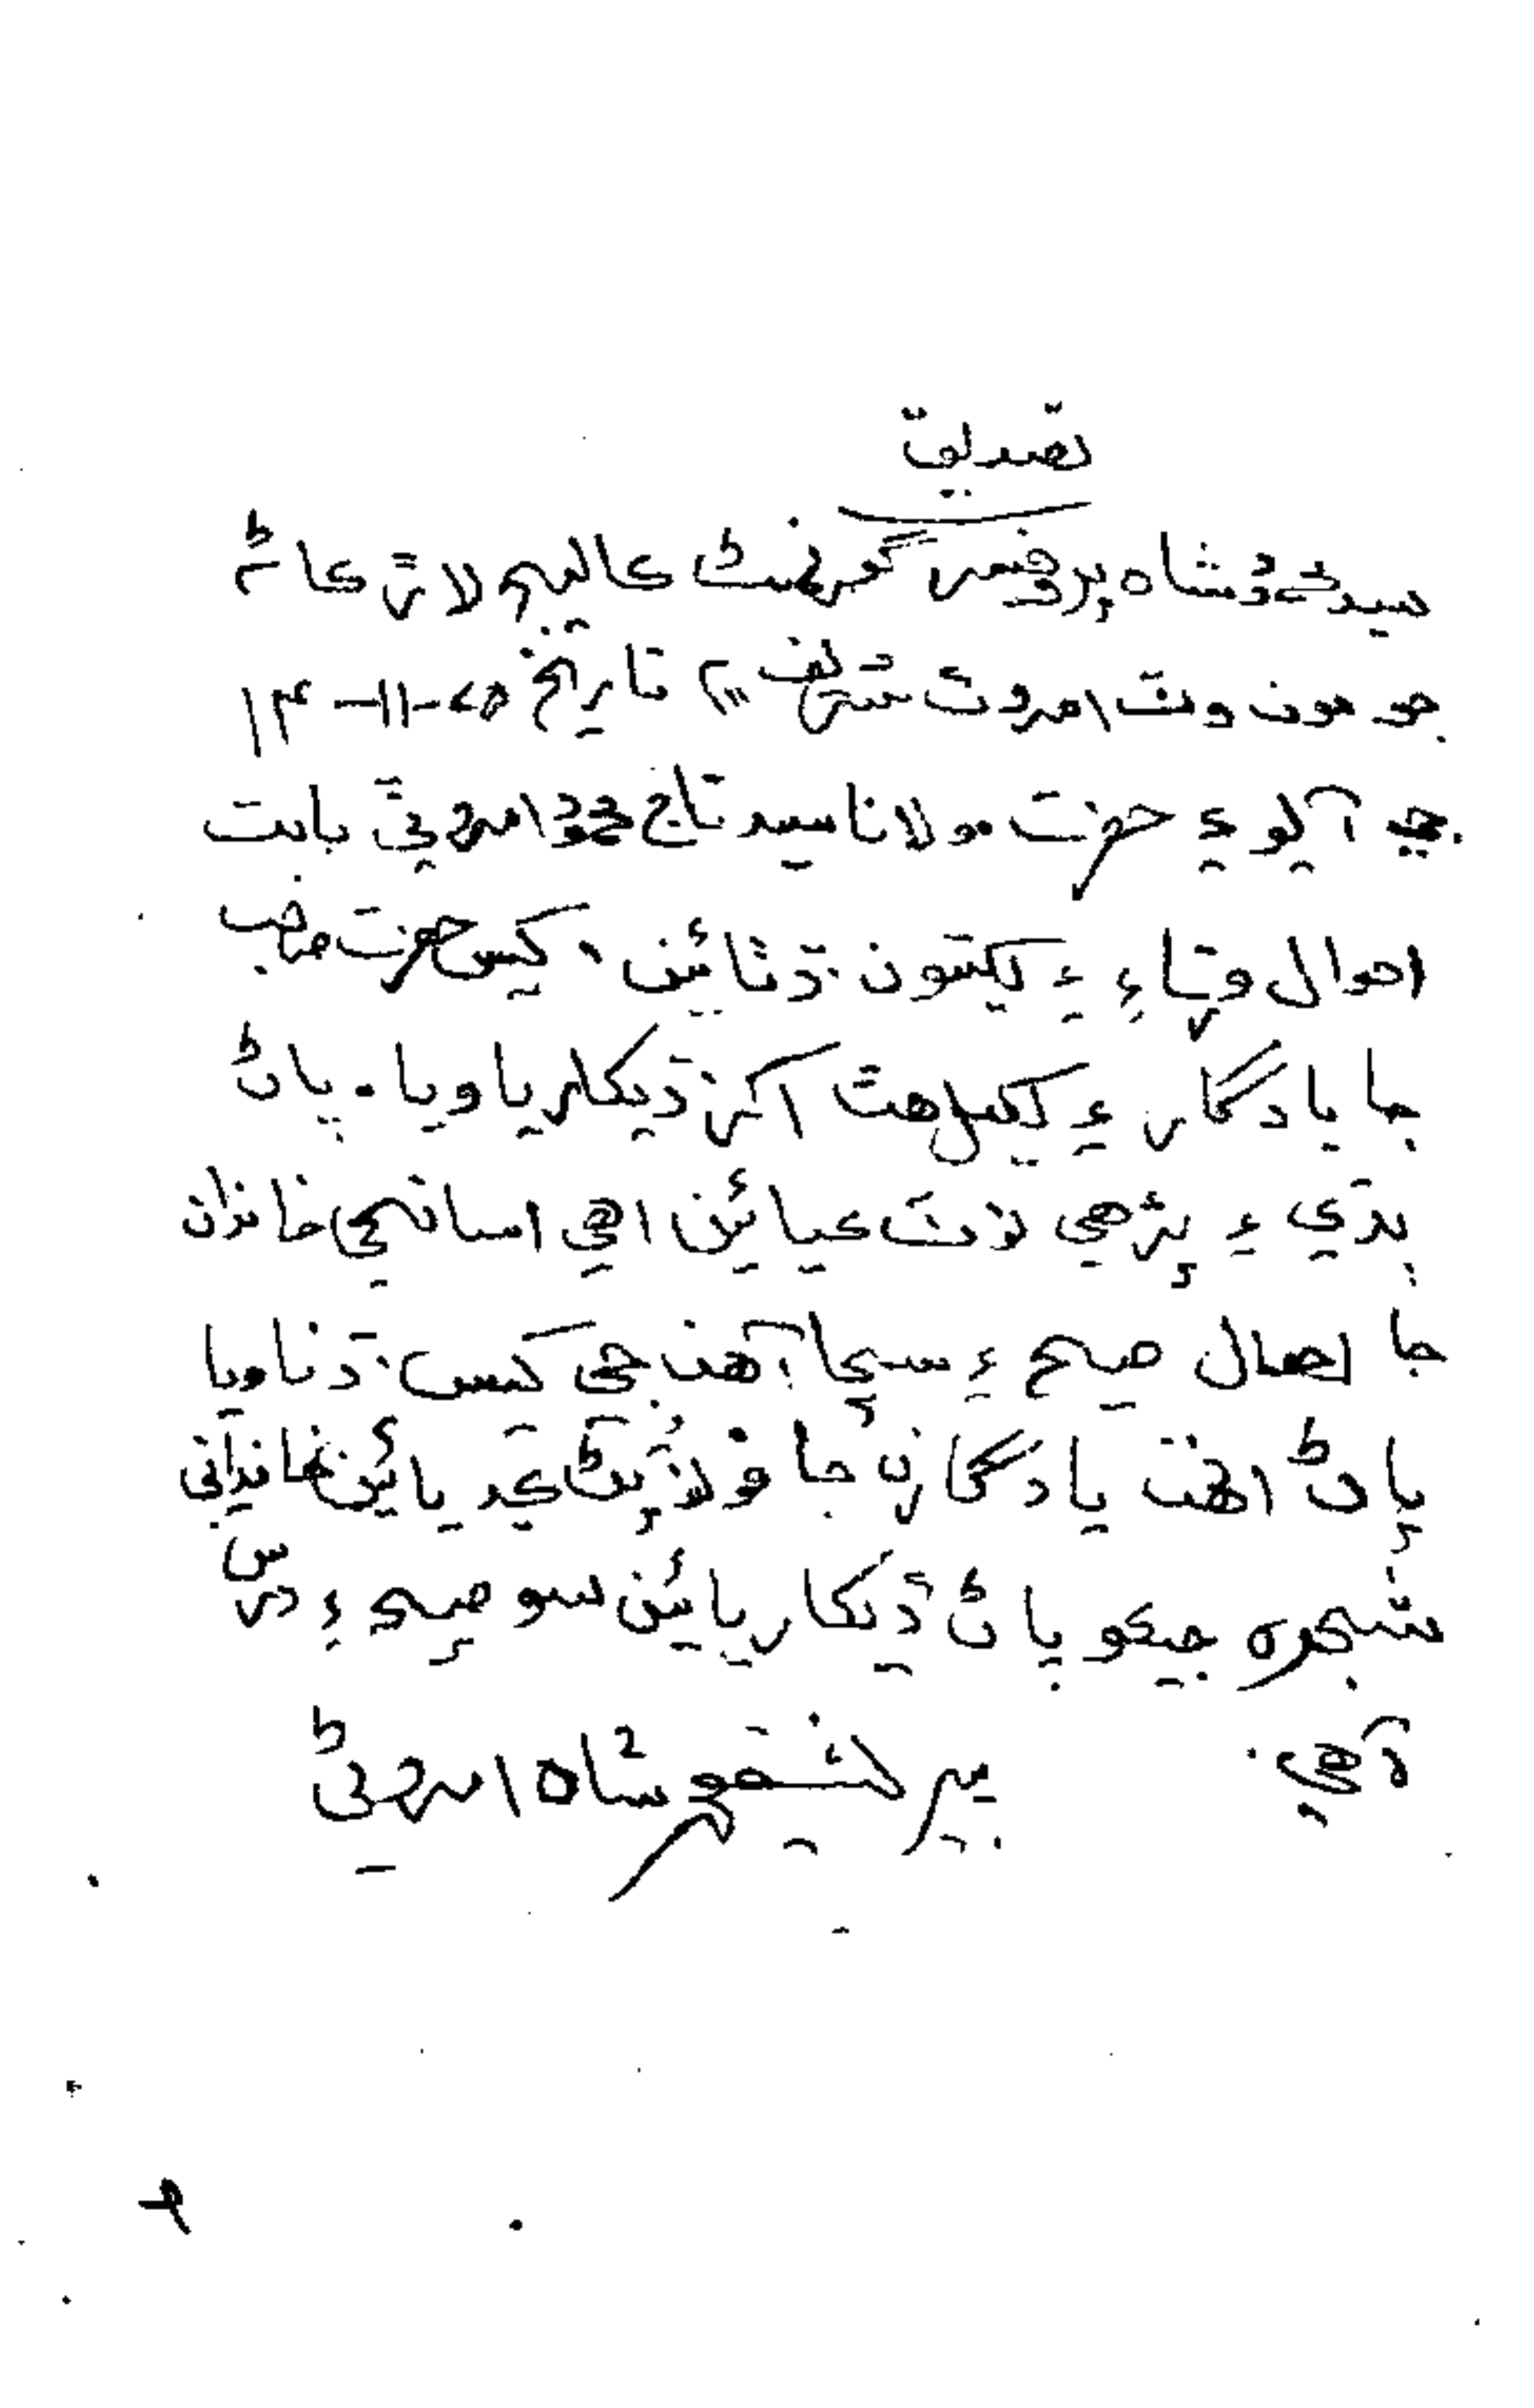 تصديق
سيد محمد شاه پروفيسر گورنمينٽ ڪاليج لاڙڪاڻه
جو مون وٽ امروٽ شريف ۾ تاريخ ٧٥-١١-١٤
جي آيو ۽ حضرت مولانا سيد تاج محمود امروٽي بابت
احوال ورتاءِ ۽ ڪيترن ڏنائين. کيس حضرت صاحب
جا يادگار ۽ ڪتب هٿ اکر ڏيکاريا ويا. پاڻ
ٻڌي ۽ پڙهي نوٽ ڪيائين اهي اسانجي خاندان
جا احوال صحيح ۽ سچا آهن جي کيس ڏنا ويا
پاڻ اهڙن يادگارن جا فوٽو پڻ ڪڍيائين خانداني
شجره جيڪو پاڻ ڏيکاريائين سو صحيح ۽ درس
آهي.
پير شاه امروٽي
٩